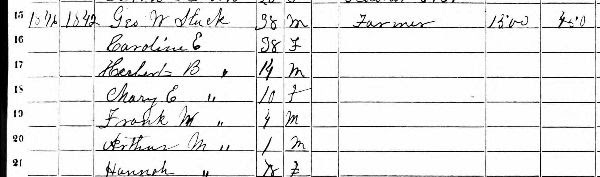 15 1842 Geo W Stuck 38 M Farmer 1500 450
16 Caroline E 38 F
17 Herbert B " 14 M
18 Mary E " 10 F
19 Frank W " 4 M
20 Arthur M " 1 M
21 Hannah " F